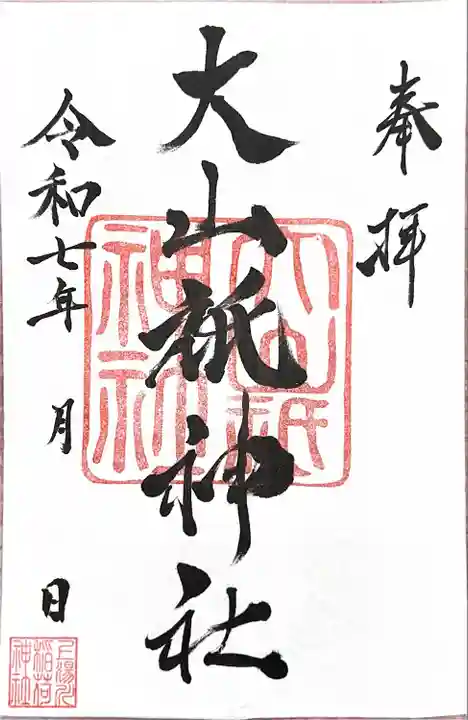 奉拝
大山祇神社
大山祇
神社
令和七年 月 日
稲荷
神社